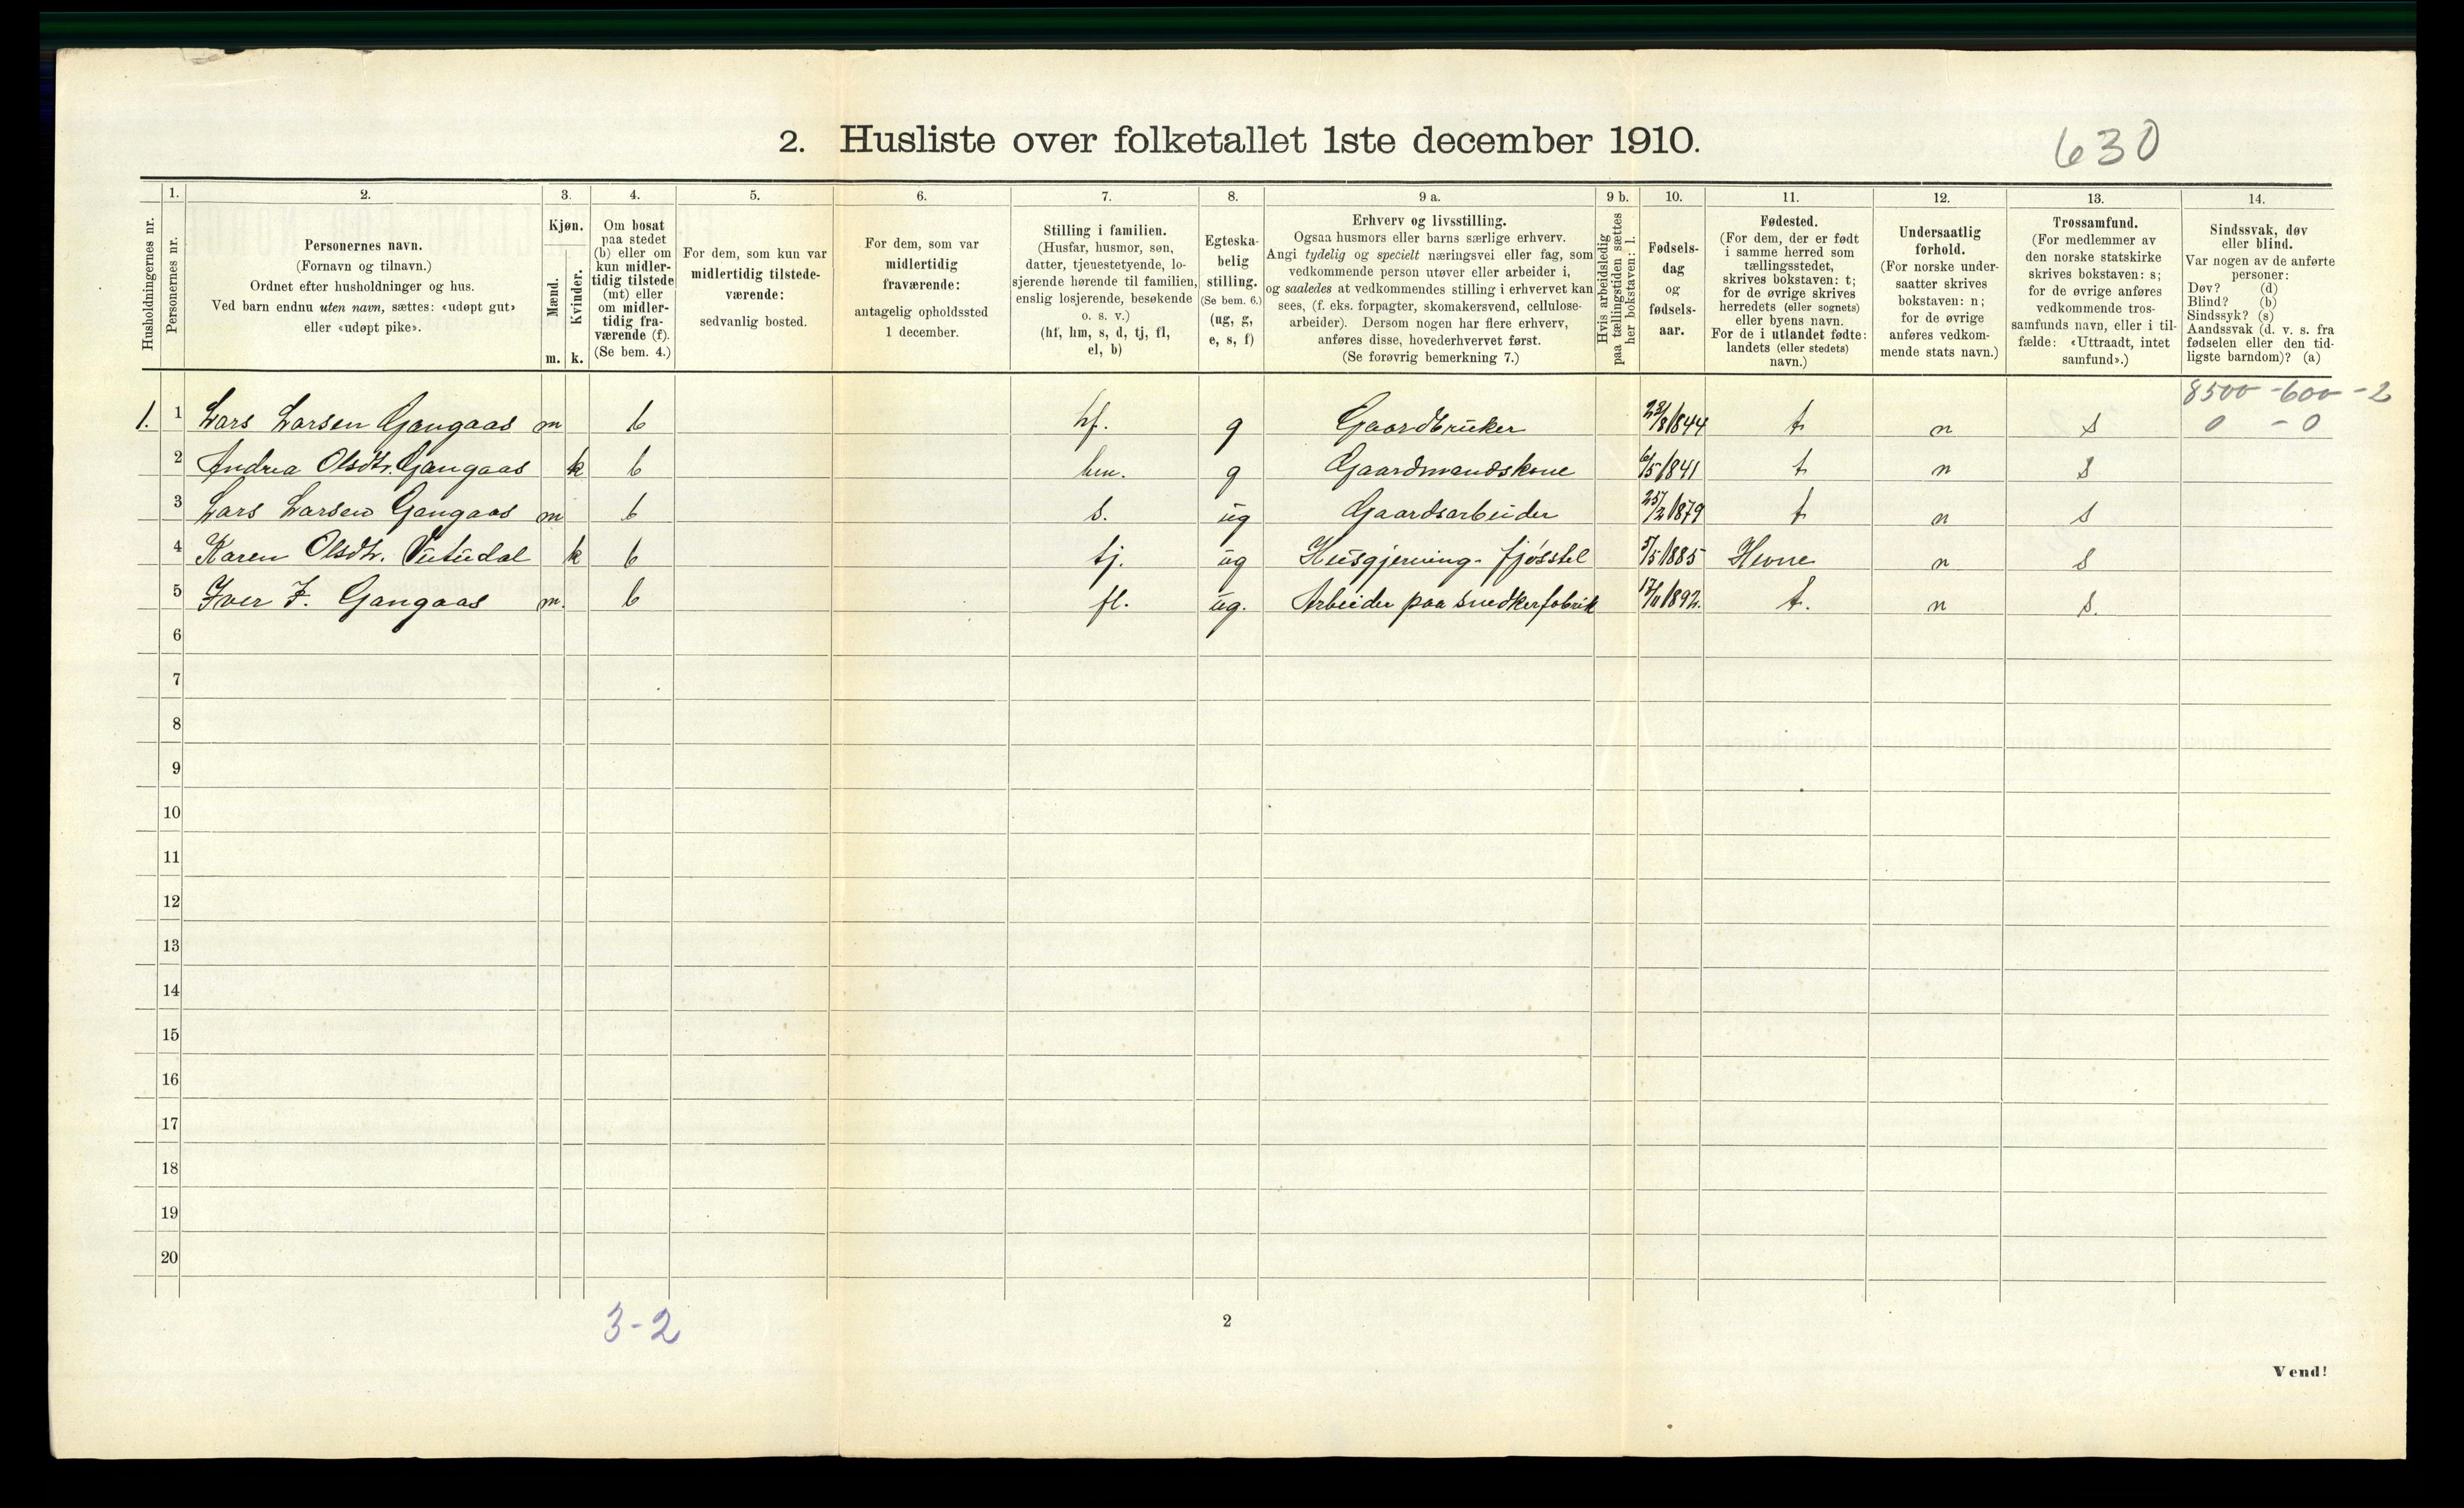 2. Husliste over folketallet 1ste december 1910.
630
Husholdningernes nr.
1.
Personernes nr.
2.
Personernes navn.
(Fornavn og tilnavn.)
Ordnet efter husholdninger og hus.
Ved barn endnu uten navn, sættes: «udøpt gut»
eller «udøpt pike».
3.
Kjøn.
Mænd.
Kvinder.
m. k.
4.
Om bosat
paa stedet
(b) eller om
kun midler-
tidig tilstede
(mt) eller
om midler-
tidig fra-
værende (f).
(Se bem. 4.)
5.
For dem, som kun var
midlertidig tilstede-
værende:
sedvanlig bosted.
6.
For dem, som var
midlertidig
fraværende:
antagelig opholdssted
1 december.
7.
Stilling i familien.
(Husfar, husmor, søn,
datter, tjenestetyende, lo-
sjerende hørende til familien,
enslig losjerende, besøkende
o. s. v.)
(hf, hm, s, d, tj, fl,
el, b)
8.
Egteska-
belig
stilling.
(Se bem. 6.)
(ug, g,
e, s, f)
9 a.
Erhverv og livsstilling.
Ogsaa husmors eller barns særlige erhverv.
Angi tydelig og specielt næringsvei eller fag, som
vedkommende person utøver eller arbeider i,
og saaledes at vedkommendes stilling i erhvervet kan
sees, (f. eks. forpagter, skomakersvend, cellulose-
arbeider). Dersom nogen har flere erhverv,
anføres disse, hovederhvervet først.
(Se forøvrig bemerkning 7.)
9 b.
Hvis arbeidsledig
paa tællingstiden sættes
her bokstaven: l.
10.
Fødsels-
dag
og
fødsels-
aar.
11.
Fødested.
(For dem, der er født
i samme herred som
tællingsstedet,
skrives bokstaven: t;
for de øvrige skrives
herredets (eller sognets)
eller byens navn.
For de i utlandet fødte:
landets (eller stedets)
navn.)
12.
Undersaatlig
forhold.
(For norske under-
saatter skrives
bokstaven: n;
for de øvrige
anføres vedkom-
mende stats navn.)
13.
Trossamfund.
(For medlemmer av
den norske statskirke
skrives bokstaven: s;
for de øvrige anføres
vedkommende tros-
samfunds navn, eller i til-
fælde: «Uttraadt, intet
samfund».)
14.
Sindssvak, døv
eller blind.
Var nogen av de anførte
personer:
Døv? (d)
Blind? (b)
Sindssyk? (s)
Aandssvak (d. v. s. fra
fødselen eller den tid-
ligste barndom)? (a)
8500 - 600 - 2
1. 1 Lars Larsen Gangaas m b hf. g Gaardbruker 23/8 1844 t n s 0 - 0
2 Andrea Olsdtr. Gangaas k b hm. g Gaardmandskone 6/5 1841 t n s
3 Lars Larsen Gangaas m b s. ug Gaardsarbeider 25/2 1879 t n s
4 Karen Olsdtr. k b tj. ug Husgjerning - fjøsstel 5/5 1885 Hevne n s
5 Iver I. Gangaas m. b fl. ug. Arbeider paa snedkerfabrik 17/11 1892. t. n s.
6
7
8
9
10
11
12
13
14
15
16
17
18
19
20
3-2
2
Vend!